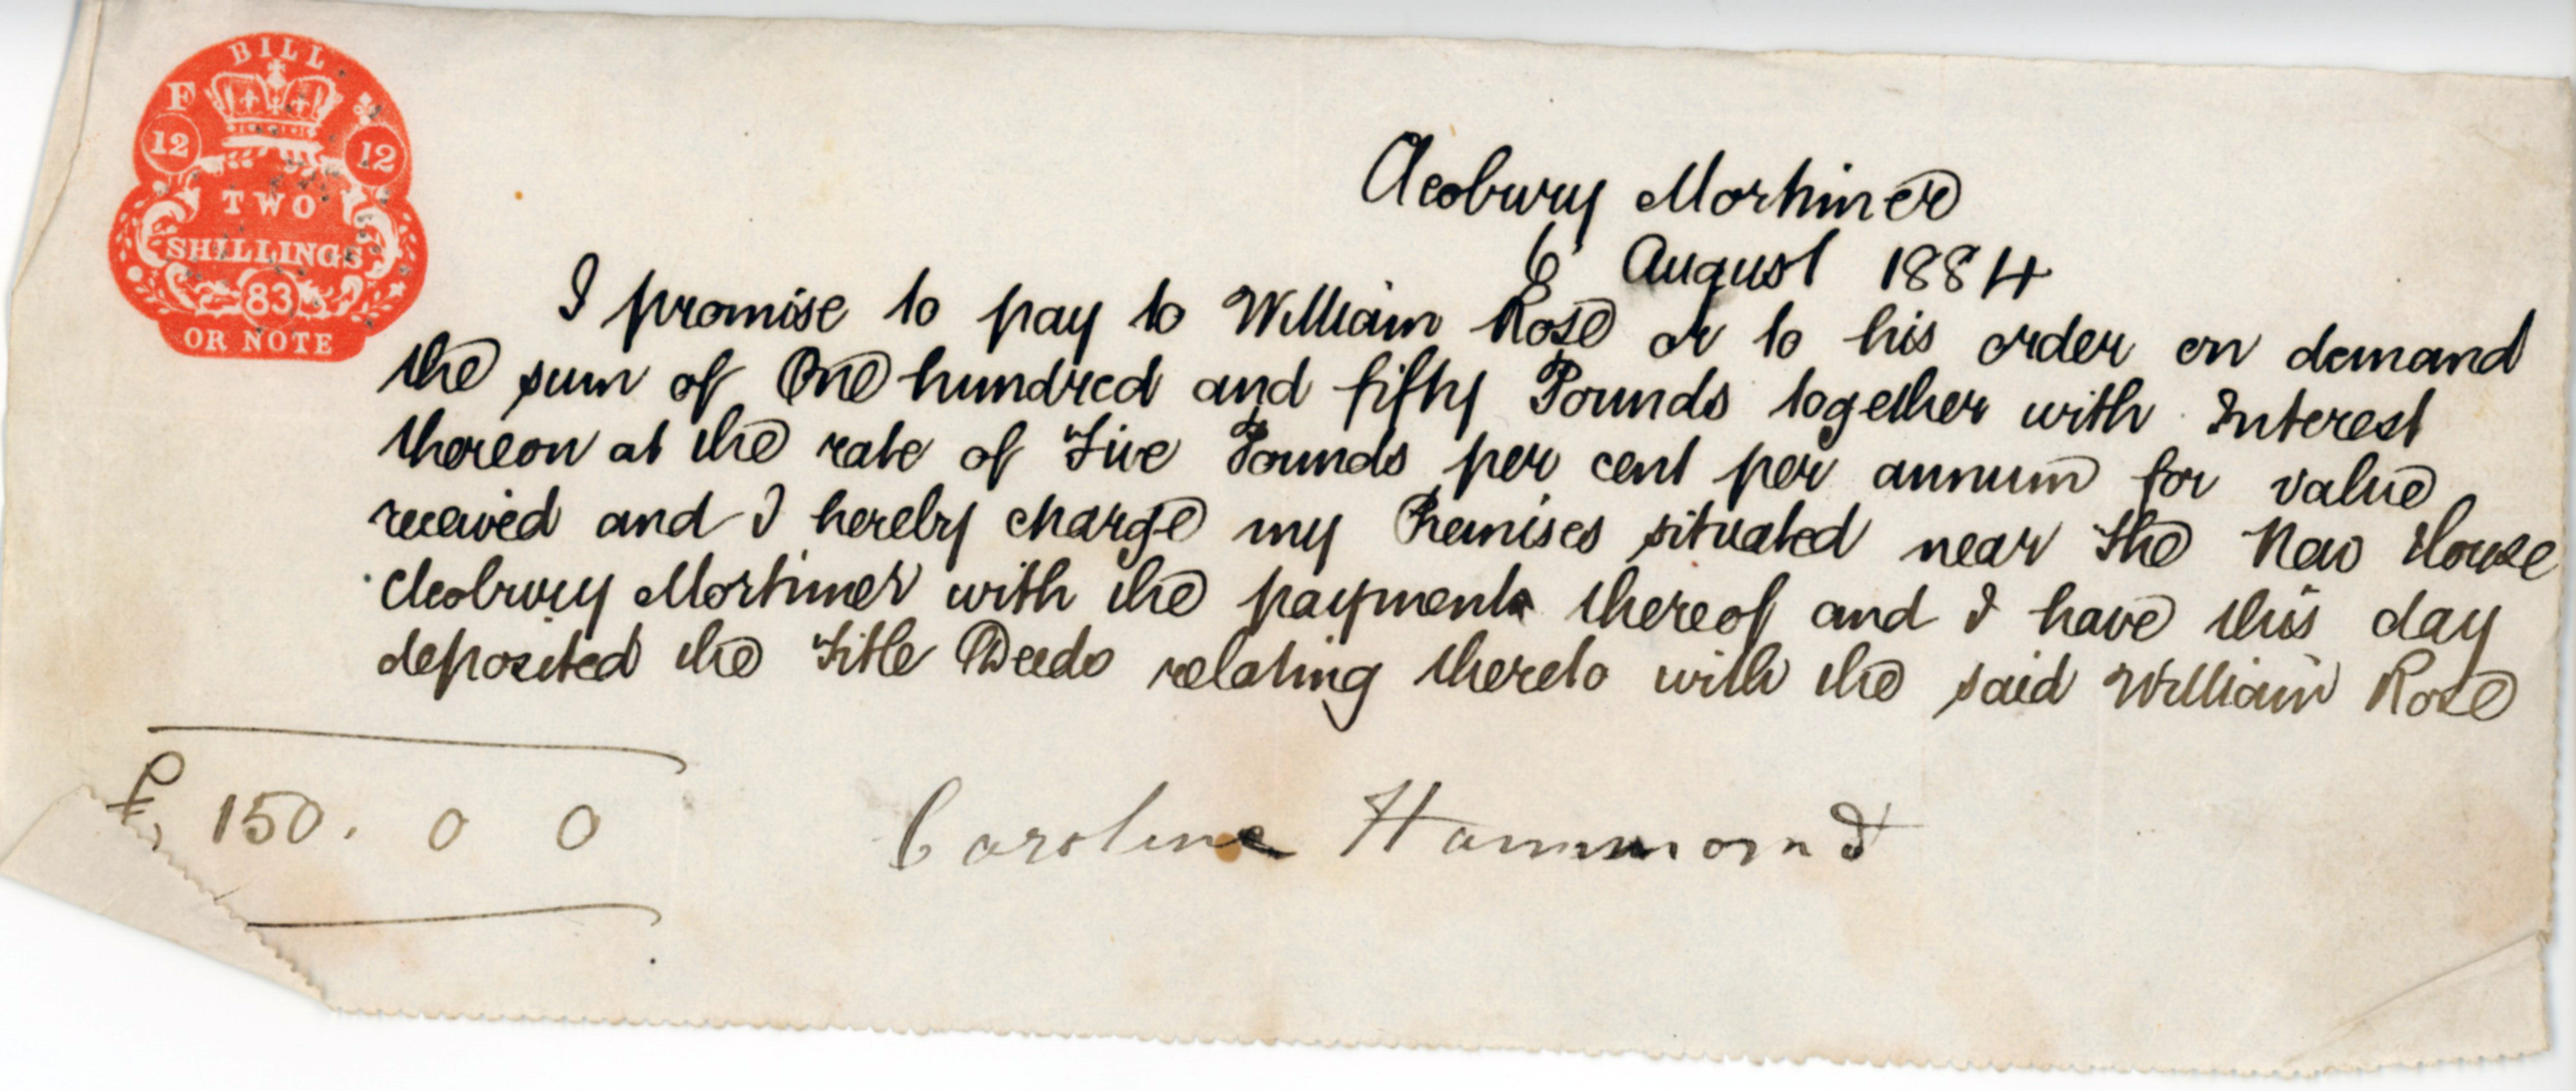 BILL
F
12 12
TWO
SHILLINGS
83
OR NOTE
Cleobury Mortimer
6 August 1884
I promise to pay to William Rose or to his order on demand
the sum of One hundred and fifty Pounds together with Interest
thereon at the rate of Five Pounds per cent per annum for value
received and I hereby charge my Premises situated near the New House
Cleobury Mortimer with the payment thereof and I have this day
deposited the Title Deeds relating thereto with the said William Rose
£ 150. 0 0
Caroline Hammond